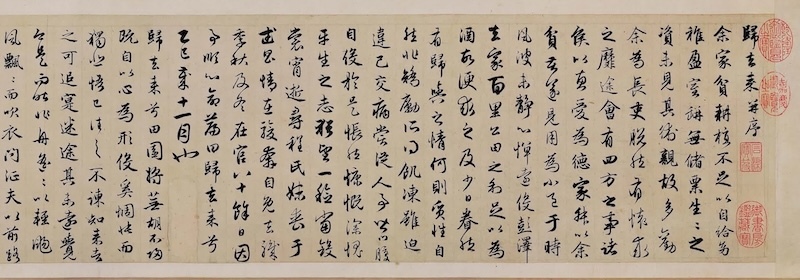 歸去來并序
余家貧耕植不足以自給幼
稚盈室缾無儲粟生生之
資未見其術親故多勸
余為長吏脫然有懷求
之靡途會有四方之事諸
侯以惠愛為德家叔以余
貧苦遂見用為小邑于時
風波未靜心憚遠役彭澤
去家百里公田之利足以為
酒故便求之及少日眷然
有歸與之情何則質性自
然非矯勵所得飢凍雖迫
違己交病嘗從人事皆口腹
自役於是悵然慷慨深愧
平生之志猶望一稔當斂
裳宵逝尋程氏妹喪于
武昌情在駿奔自免去職
季秋及冬在官八十餘日因
事順心命篇曰歸去來兮
乙巳歲十一月也
歸去來兮田園將蕪胡不歸
既自以心為形役奚惆悵而
獨悲悟已往之不諫知來者
之可追寔迷途其未遠覺
今是而昨非舟遙遙以輕颺
風飄飄而吹衣問征夫以前路